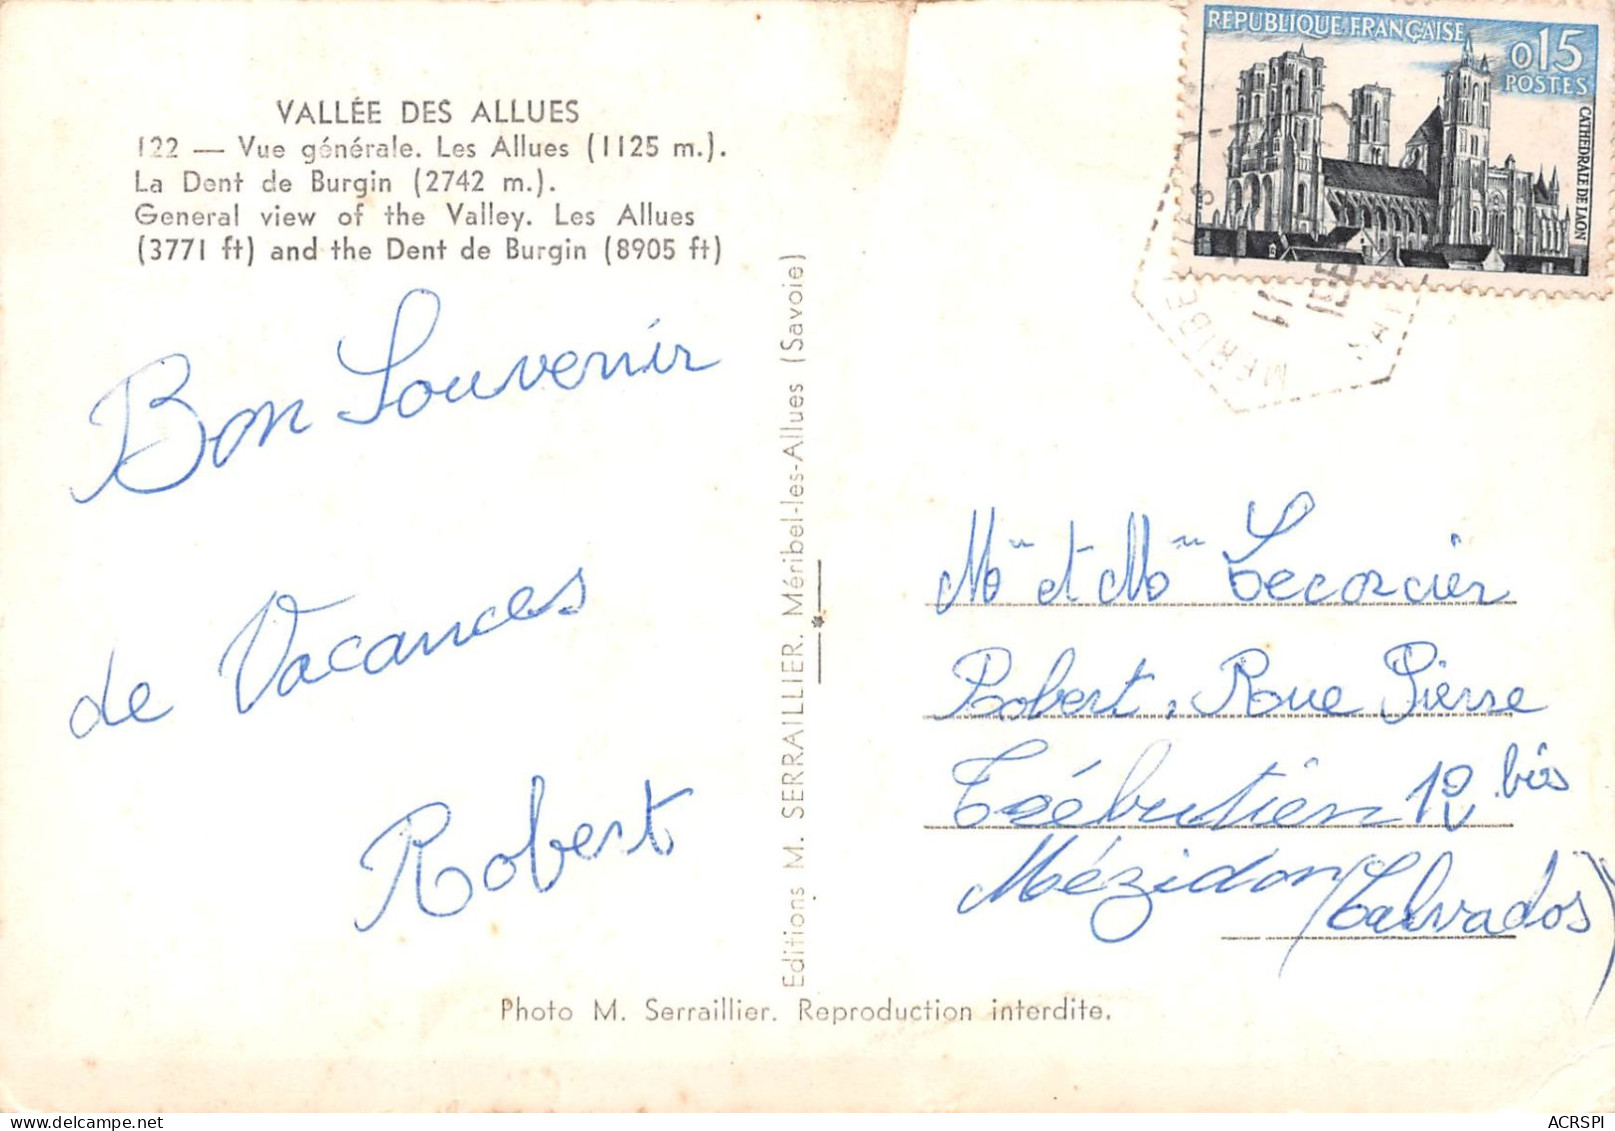 VALLÉE DES ALLUES
122 — Vue générale. Les Allues (1125 m.).
La Dent de Burgin (2742 m.).
General view of the Valley. Les Allues
(3771 ft) and the Dent de Burgin (8905 ft)
Bon Souvenir
de Vacances
Robert
Editions M. SERRAILLIER. Méribel-les-Allues (Savoie)
REPUBLIQUE FRANÇAISE
0,15
POSTES
CATHEDRALE DE LAON
MERIBEL LES
11
Mr et Mme Lecorcier
Robert, Rue Pierre
Trébutien 12 bis
Mézidon (Calvados)
Photo M. Serraillier. Reproduction interdite.
ACRSPI